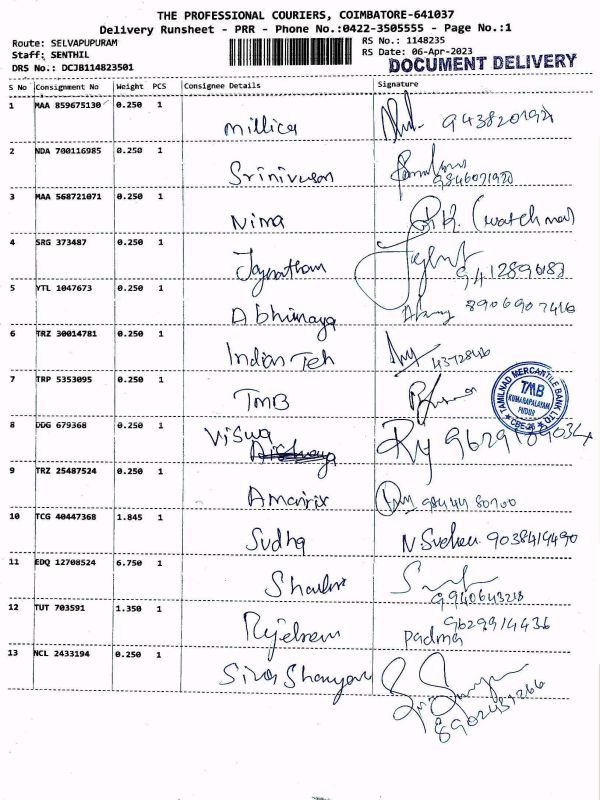 THE PROFESSIONAL COURIERS, COIMBATORE-641037
Delivery Runsheet - PRR - Phone No.:0422-3505555 - Page No.:1
Route: SELVAPUPURAM RS No.: 1148235
Staff: SENTHIL RS Date: 06-Apr-2023
DRS No.: DCJB114823501 DOCUMENT DELIVERY
S No Consignment No Weight PCS Consignee Details Signature
1 MAA 859675130 0.250 1
Millica
2 NDA 700116985 0.250 1
Srinivasan 9846071920
3 MAA 568721071 0.250 1
Nima (watchman)
4 SRG 373487 0.250 1
Jagnatham
5 YTL 1047673 0.250 1
Abhinaya 8906907416
6 TRZ 30014781 0.250 1
Indian Teh
7 TRP 5353095 0.250 1
TMB
TAMILNAD MERCANTILE BANK LTD.
TMB
KUMARAPALAYAM
PUDUR
CBE-26
8 DDG 679368 0.250 1
Viswa
9 TRZ 25487524 0.250 1
10 TCG 40447368 1.845 1
Sudha 9038419490
11 EDQ 12708524 6.750 1
9940643218
12 TUT 703591 1.350 1
9629914436
Padma
13 NCL 2433194 0.250 1
Siva